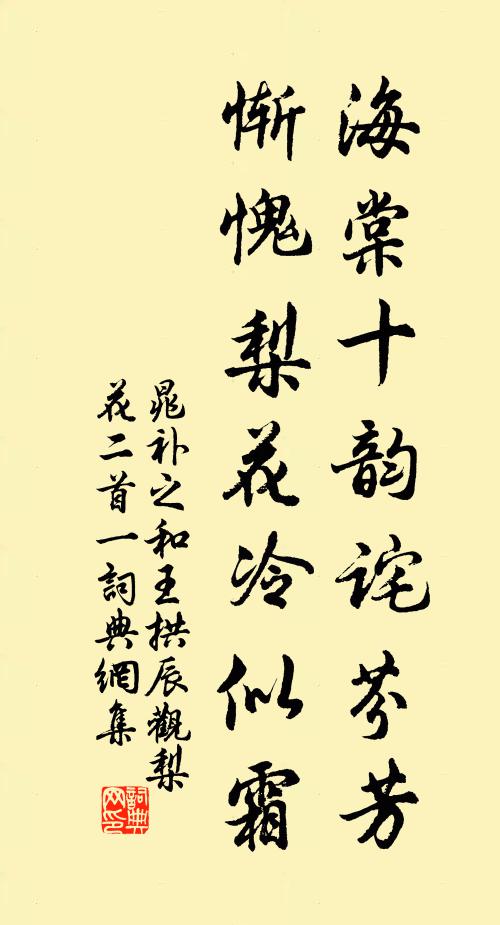 海棠十韵詫芬芳
惭愧梨花冷似霜
晁补之和王拱辰觀梨
花二首一詞典網集
詞典
网印